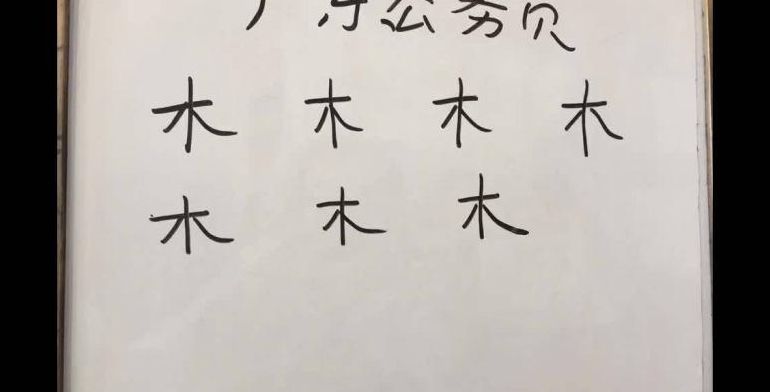 公务员
木 木 木 木
木 木 木